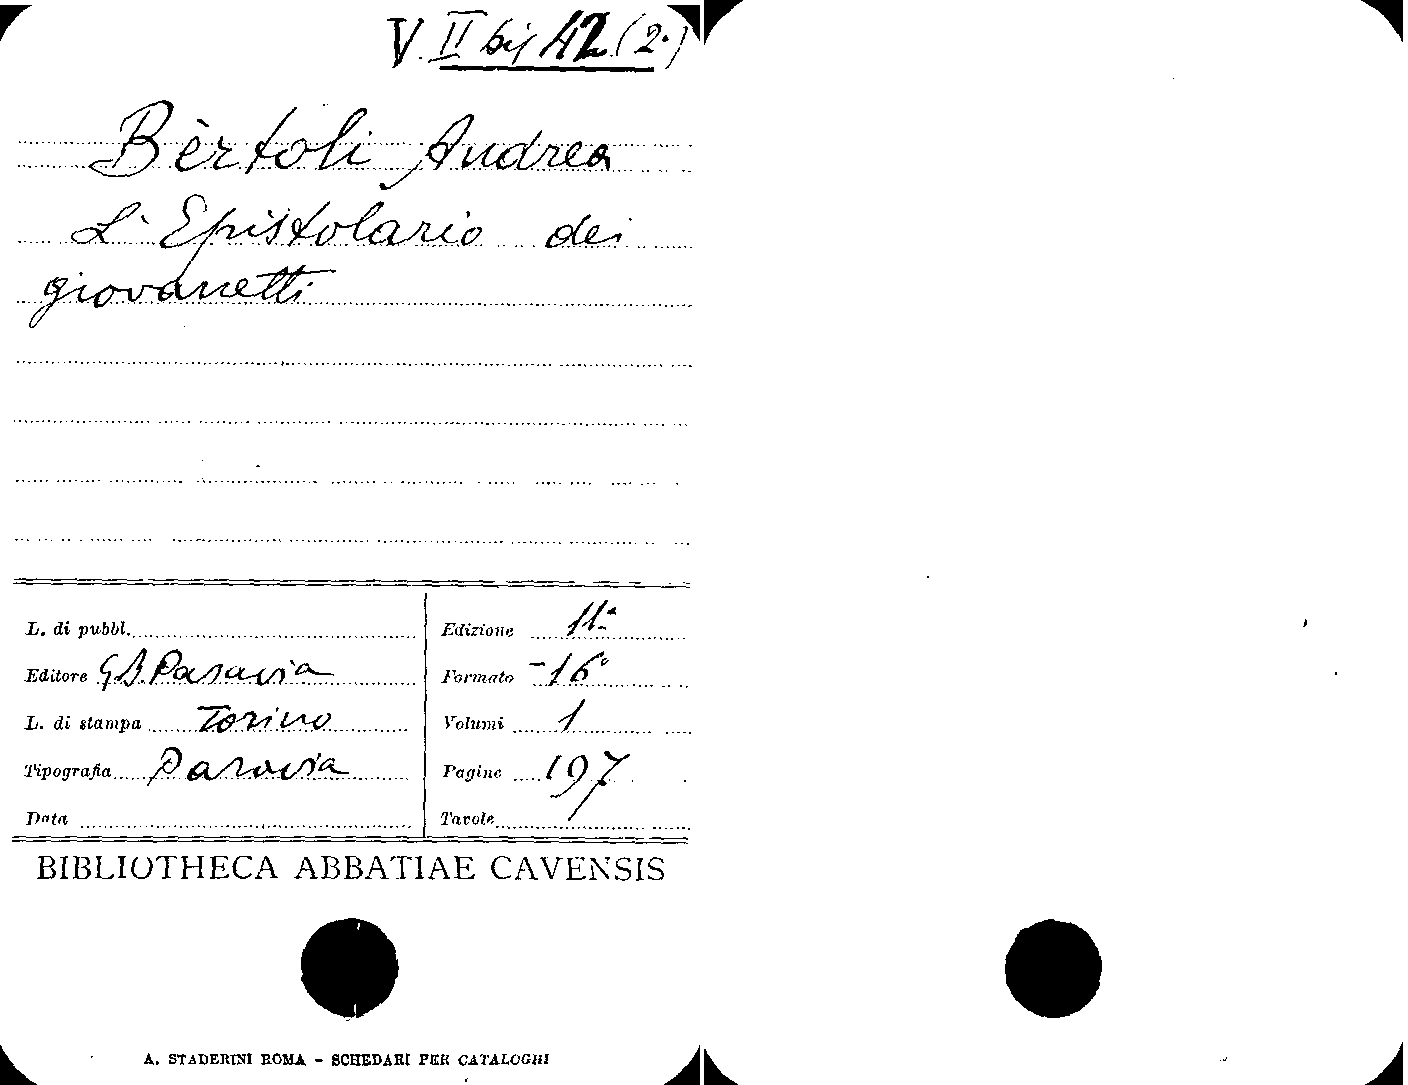 V. II bis 42 (2.)
Bèrtoli Andrea
L'Epistolario dei
giovanetti
L. di pubbl.
Edizione 11ª
Editore G. B. Paravia
Formato -16°
L. di stampa Torino
Volumi 1
Tipografia Paravia
Pagine 197
Data
Tavole
BIBLIOTHECA ABBATIAE CAVENSIS
A. STADERINI ROMA - SCHEDARI PER CATALOGHI